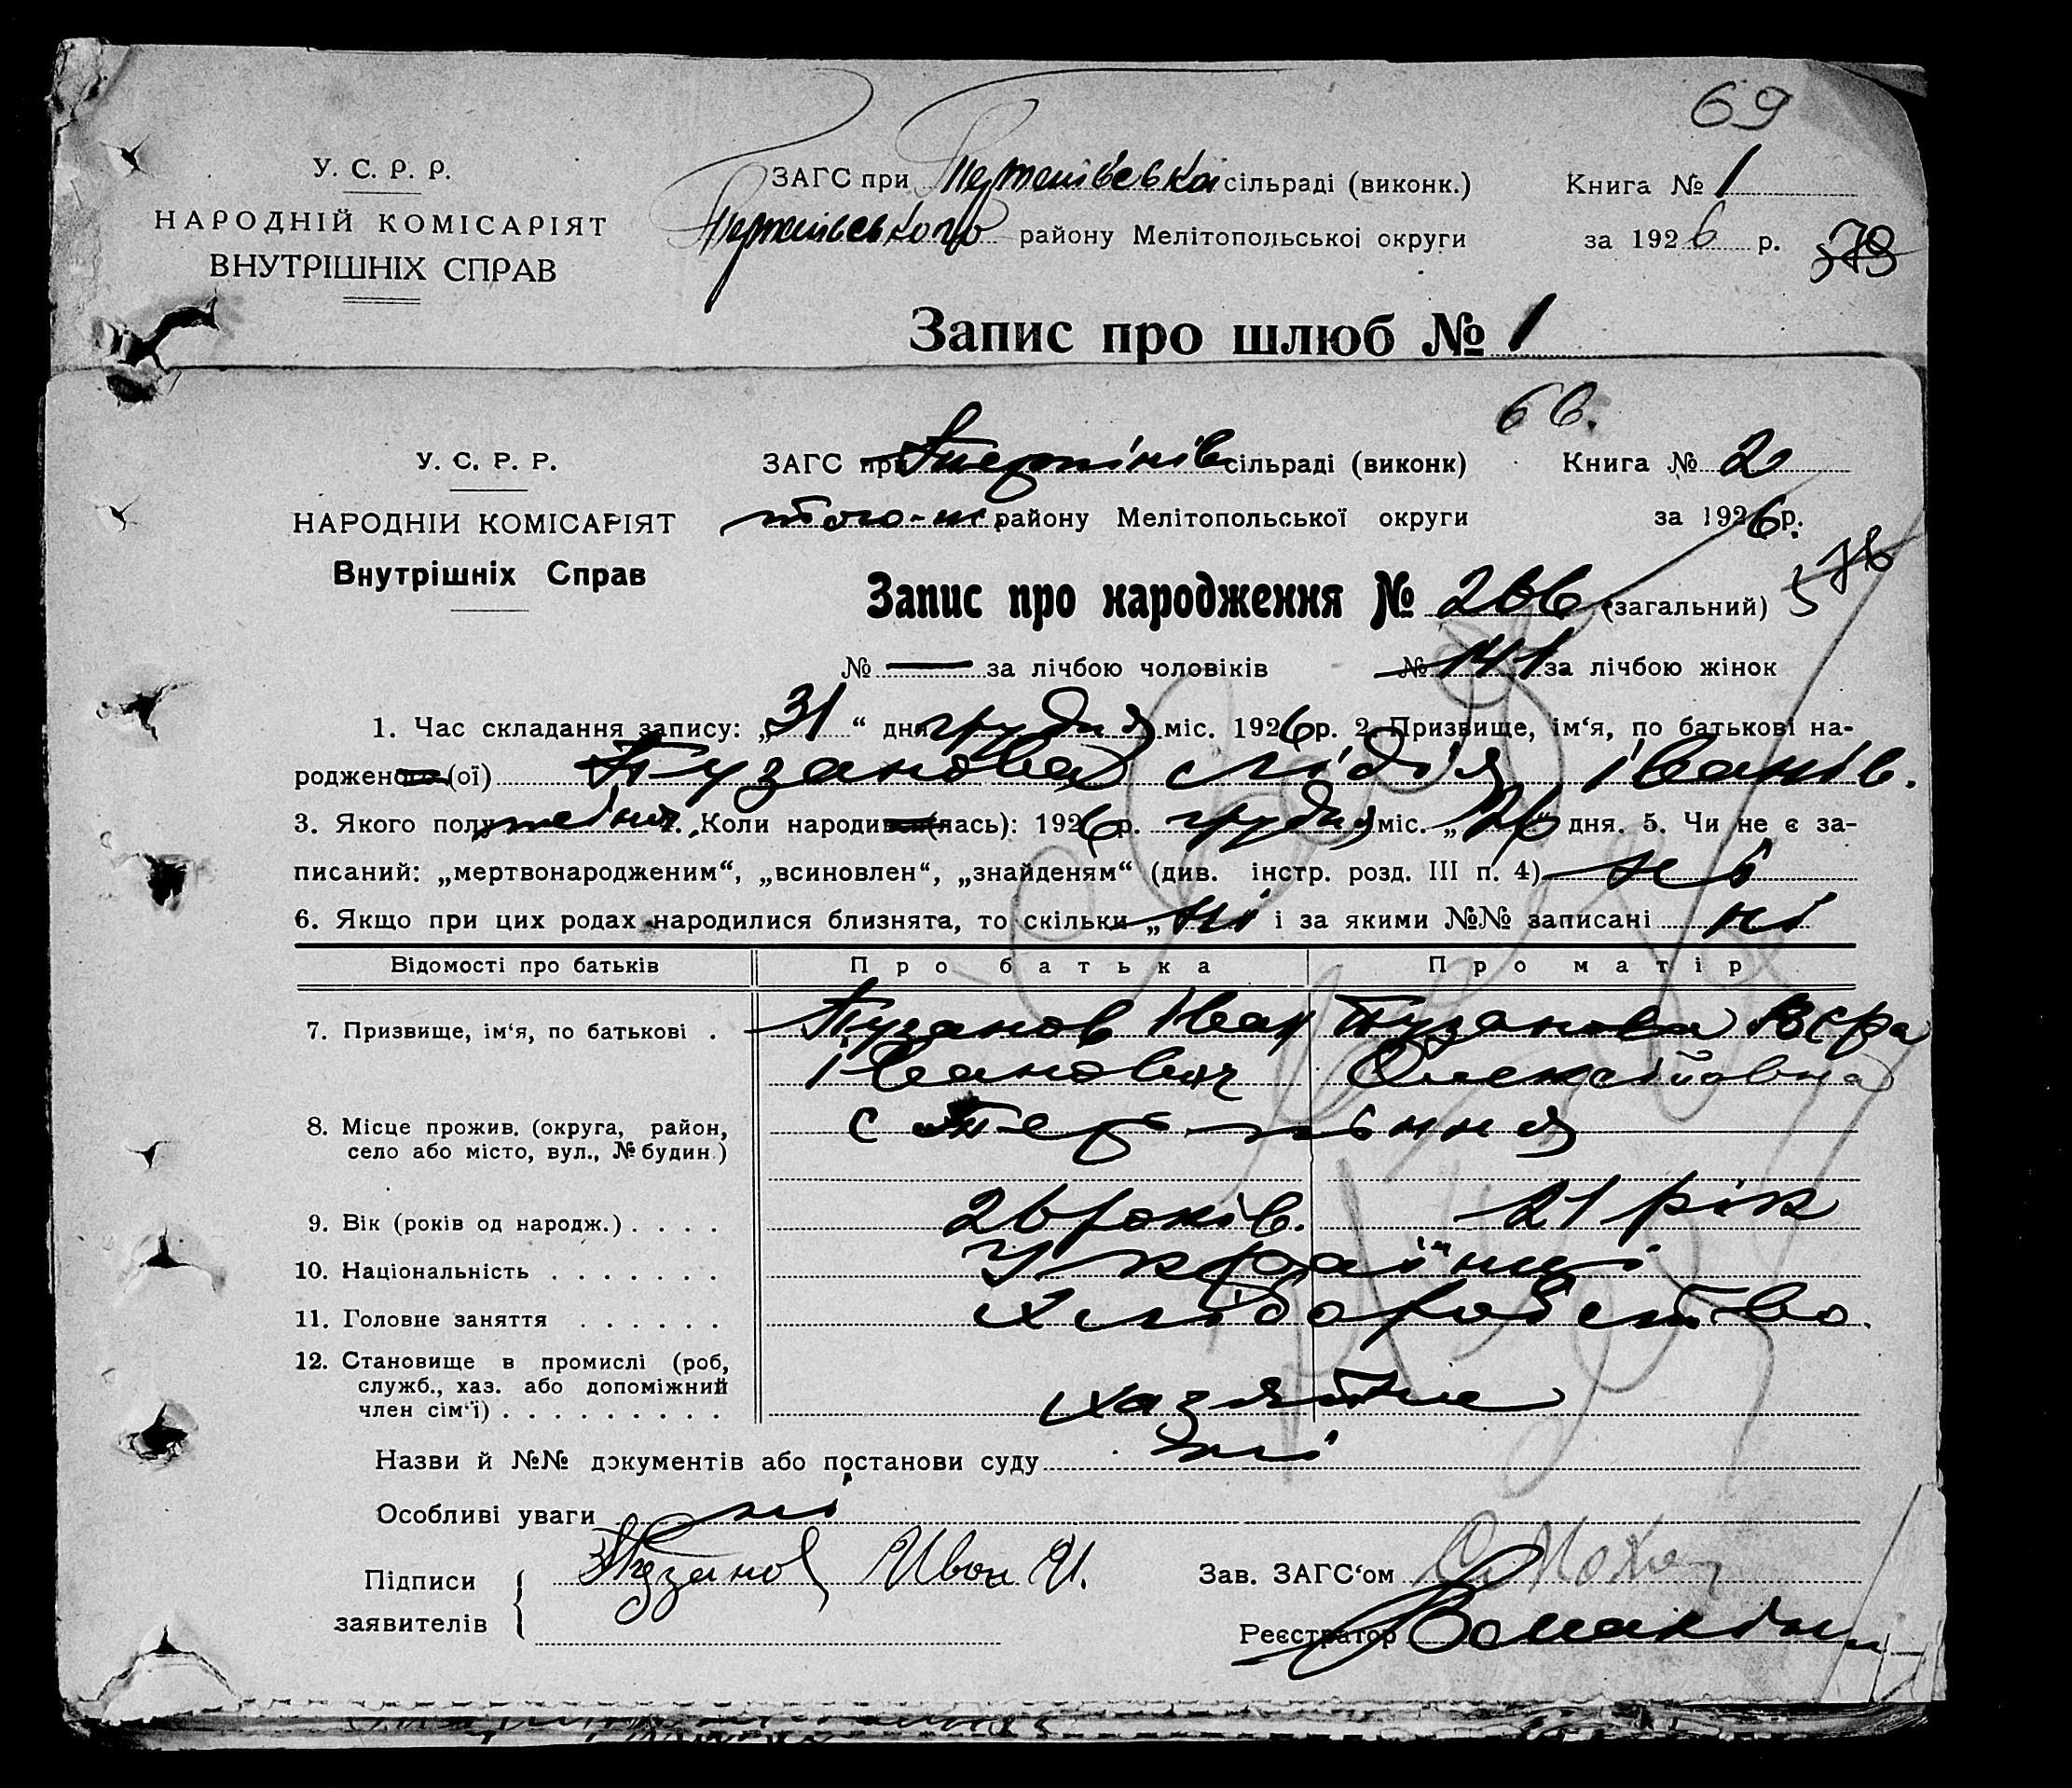 69
У. С. Р. Р. ЗАГС при сільраді (виконк.) Книга № 1
НАРОДНІЙ КОМІСАРІЯТ району Мелітопольської округи за 1926 р.
ВНУТРІШНІХ СПРАВ
Запис про шлюб № 1
У. С. Р. Р. ЗАГС при сільраді (виконк) Книга № 2
НАРОДНІЙ КОМІСАРІЯТ того-ж району Мелітопольської округи за 1926 р.
Внутрішніх Справ
Запис про народження № (загальний)
№ — за лічбою чоловіків № 141 за лічбою жінок
1. Час складання запису: „31“ дня грудня міс. 1926 р. 2. Призвище, ім‘я, по батькові на-
родженого (ої) Пузанова Лідія Іванів.
3. Якого полу жіноч. 4. Коли народився (лась): 1926 р. грудня міс. „26“ дня. 5. Чи не є за-
писаний: „мертвонародженим“, „всиновлен“, „знайденям“ (див. інстр. розд. III п. 4)
6. Якщо при цих родах народилися близнята, то скільки „ні і за якими №№ записані ні
Відомості про батьків Про батька Про матір
7. Призвище, ім‘я, по батькові . Пузанов Іван Пузанова Вера
Іванович Олексіївна
8. Місце прожив. (округа, район, с Терпіння
село або місто, вул., № будин.)
9. Вік (років од народж.) . . . . 26 років. 21 рік
10. Національність . . . . . . . Українці
11. Головне заняття . . . . . . Хліборобство.
12. Становище в промислі (роб,
служб., хаз. або допоміжний
член сім‘ї) . . . . . . . . .
Назви й №№ документів або постанови суду ні
Особливі уваги ні
Підписи Пузанов Иван И. Зав. ЗАГС‘ом
заявителів Реєстратор